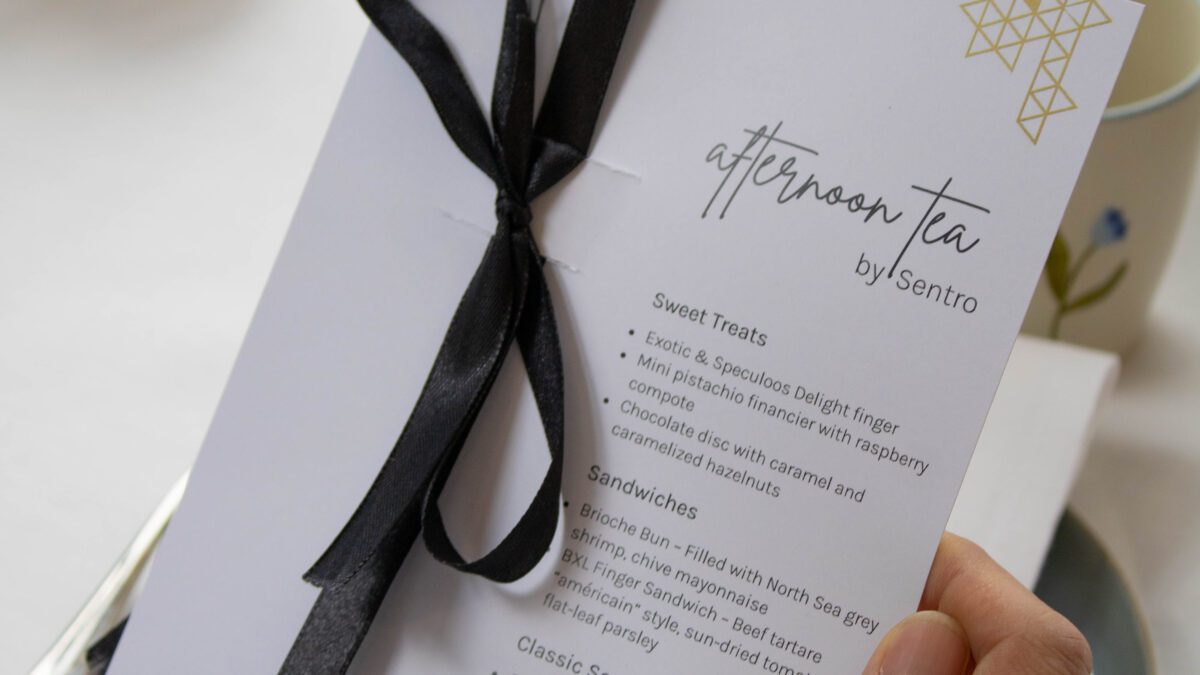 afternoon tea
by Sentro
Sweet Treats
• Exotic & Speculoos Delight finger
• Mini pistachio financier with raspberry
compote
• Chocolate disc with caramel and
caramelized hazelnuts
Sandwiches
• Brioche Bun – Filled with North Sea grey
shrimp, chive mayonnaise
BXL Finger Sandwich – Beef tartare
"américain" style, sun-dried
flat-leaf parsley
Classic